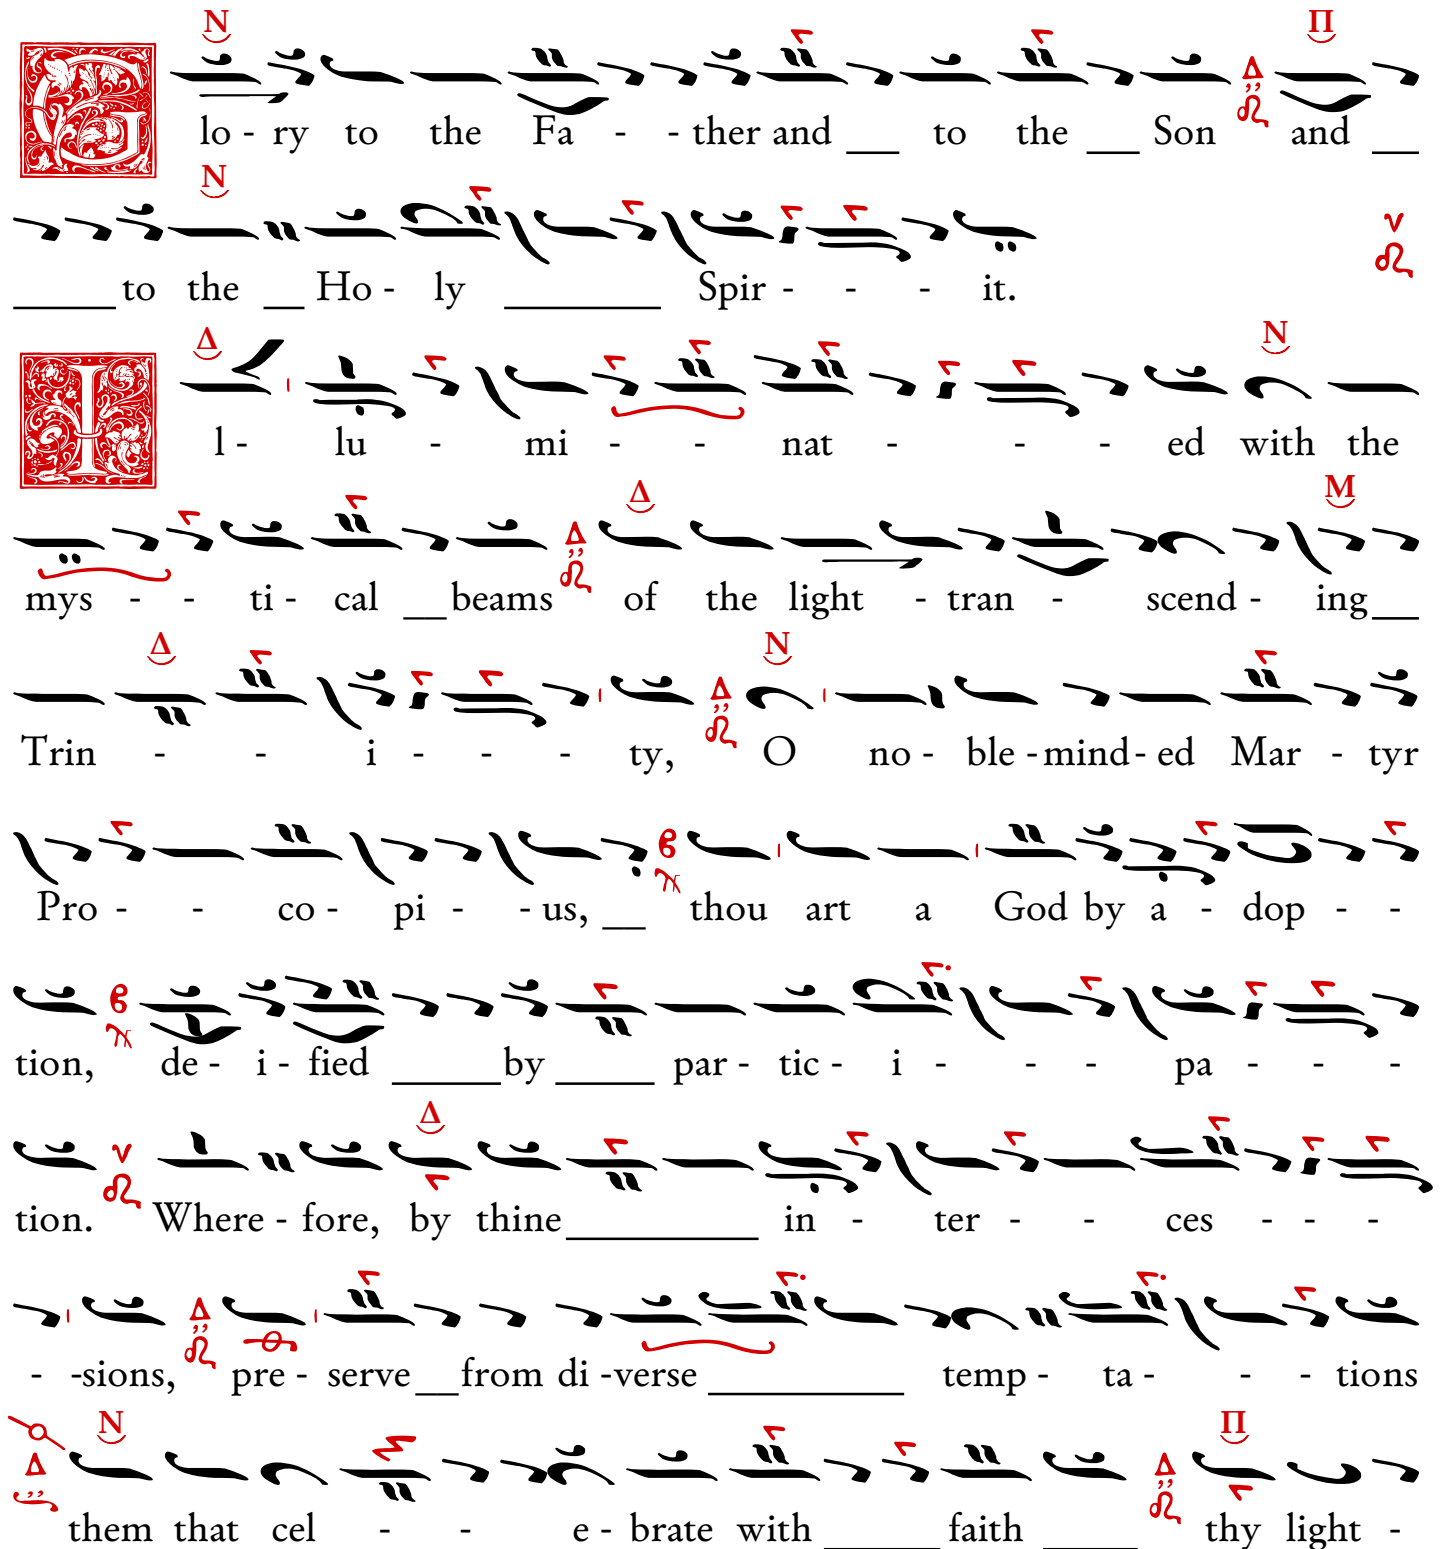 Glo - ry to the Fa - - ther and __ to the __ Son and __
____ to the __ Ho - ly ______ Spir - - - it.
Il - lu - mi - - nat - - - ed with the
mys - - ti - cal __ beams of the light - tran - scend - ing __
Trin - - i - - - ty, O no - ble - mind - ed Mar - tyr
Pro - - co - pi - - us, __ thou art a God by a - dop - -
tion, de - i - fied ____ by ____ par - tic - i - - - pa - - -
tion. Where - fore, by thine _______ in - ter - - ces - - -
- - sions, pre - serve __ from di - verse _______ temp - ta - - - tions
them that cel - - e - brate with ____ faith ____ thy light -